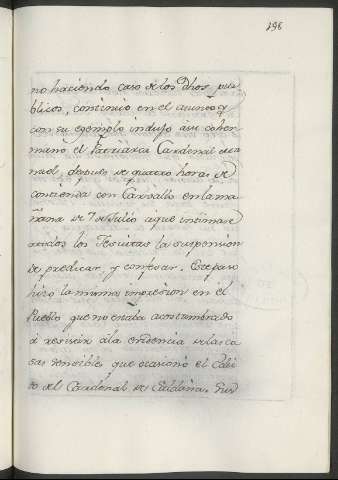 198
no haciendo caso de los dhos pu-
blicos, continuó en el asunto, y
con su exemplo indujo á su coher-
mano el Patriarca Cardenal Ma-
nuel, despues de quatro horas de
contienda con Carvallo en la ma-
ñana de 7 de Julio á que intimase
á todos los Jesuitas la suspension
de predicar, y confesar. Este paso
hizo la misma impresion en el
Pueblo que no estaba acostumbrado
á resistir á la evidencia de las co
sas sensibles que ocasionó el Edic
to del Cardenal de Saldaña. Sus